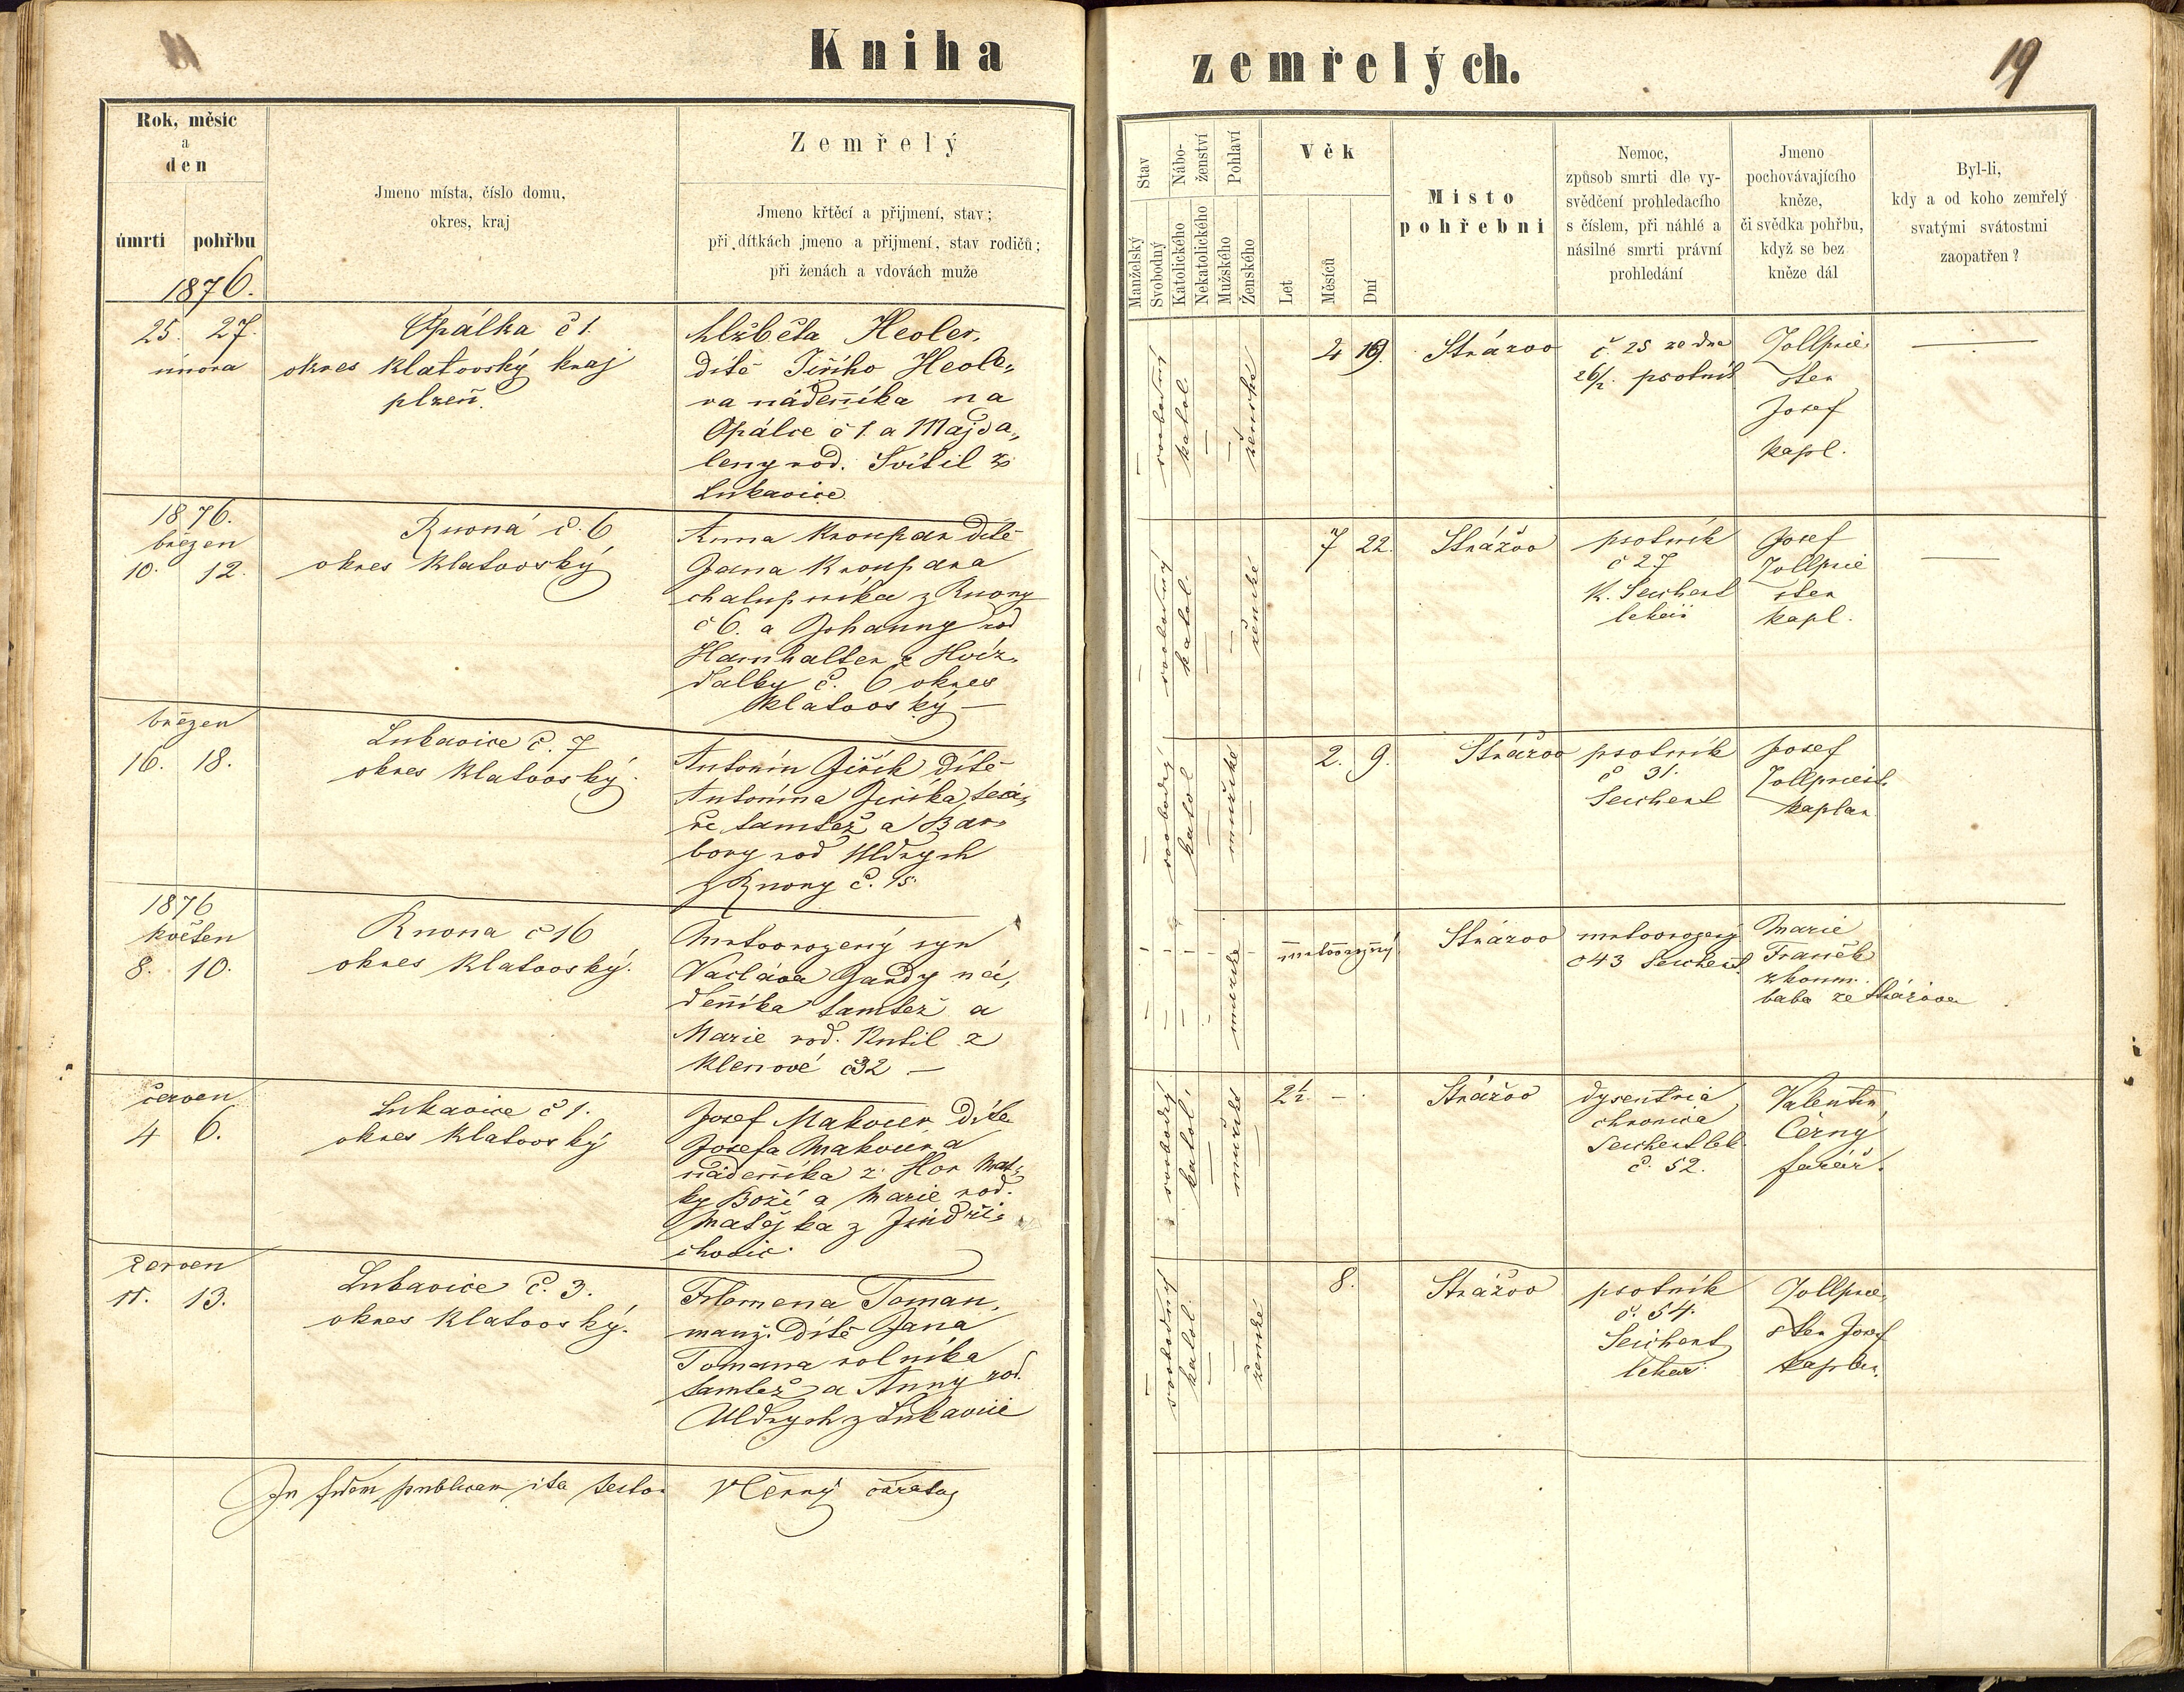 Kniha zemřelých.
19
Rok, měsíc
a
den
úmrtí pohřbu
Jmeno místa, číslo domu,
okres, kraj
Zemřelý
Jmeno křtěcí a přijmení, stav;
při dítkách jmeno a přijmení, stav rodičů;
při ženách a vdovách muže
Stav
Manželský
Svobodný
Nábo-
ženství
Katolického
Nekatolického
Pohlaví
Mužského
Ženského
Věk
Let
Měsíců
Dní
Místo
pohřební
Nemoc,
způsob smrti dle vy-
svědčení prohledacího
s číslem, při náhlé a
násilné smrti právní
prohledání
Jmeno
pochovávajícího
kněze,
či svědka pohřbu,
když se bez
kněze dál
Byl-li,
kdy a od koho zemřelý
svatými svátostmi
zaopatřen?
1876.
25. 27.
února
Opálka č 1.
okres Klatovský kraj
plzeň.
Alžběta Heoler,
dítě Jiřího Heole„
ra nádenníka na
Opálce č 1. a Majda„
leny rod. Svítil z
Lukavice
svobodný
katol.
ženské
2 19.
Strážov
č. 25 ze dne
26/2. psotník
Zollprie„
ster
Josef
kapl.
1876.
březen
10. 12.
Rovná č. 6
okres Klatovský
Anna Kroupar dítě
Jana Kroupara
chalupníka z Rovny
č 6. a Johanny rod
Hamhalter z Hvíz„
dalky č. 6 okres
Klatovský —
svobodný
katol.
ženské
7 22.
Strážov
psotník
č 27
K. Seichert
lékař
Josef
Zollprie
ster
kapl.
březen
16. 18.
Lukavice č. 7
okres Klatovský.
Antonín Jiřík dítě
Antonína Jiříka,
ře tamtéž a Bar„
bory rod Uldrych
z Rovny č. 15.
svobodný
katol
mužské
2. 9.
Strážov
psotník
č 31.
Seichert
Josef
Zollpriest.
kaplan
1876
květen
8. 10.
Rovna č 16
okres Klatovský.
Mrtvorozený syn
Václava Jandy ná„
denníka tamtéž a
Marie rod. Kutil z
Klenové č32 —
mužské
mrtvorozený
Strážov
mrtvorozený
č 43 Seichert
Marie
Franěk
zkoum.
baba ze Strážova
červen
4 6.
Lukavice č 1.
okres Klatovský
Josef Makover dítě
Josefa Makovera
nádenníka z Hor Mat„
ky Boží a Marie rod.
Matějka z Jindři„
chovic.
svobodný
katol.
mužské
2½. — .
Strážov
dysentria
chronica
Seichert lék
č. 52.
Valentin
Černý
farář.
červen
11. 13.
Lukavice č. 3.
okres Klatovský.
Filomena Toman,
manž. dítě Jana
Tomana rolníka
tamtéž a Anny rod.
Uldrych z Lukavice
svobodný
katol.
ženské
8.
Strážov
psotník
č. 54.
Seichert
lékař
Zollprie„
ster Josef
kaplan.
In fidem publicam ita testor VČerný